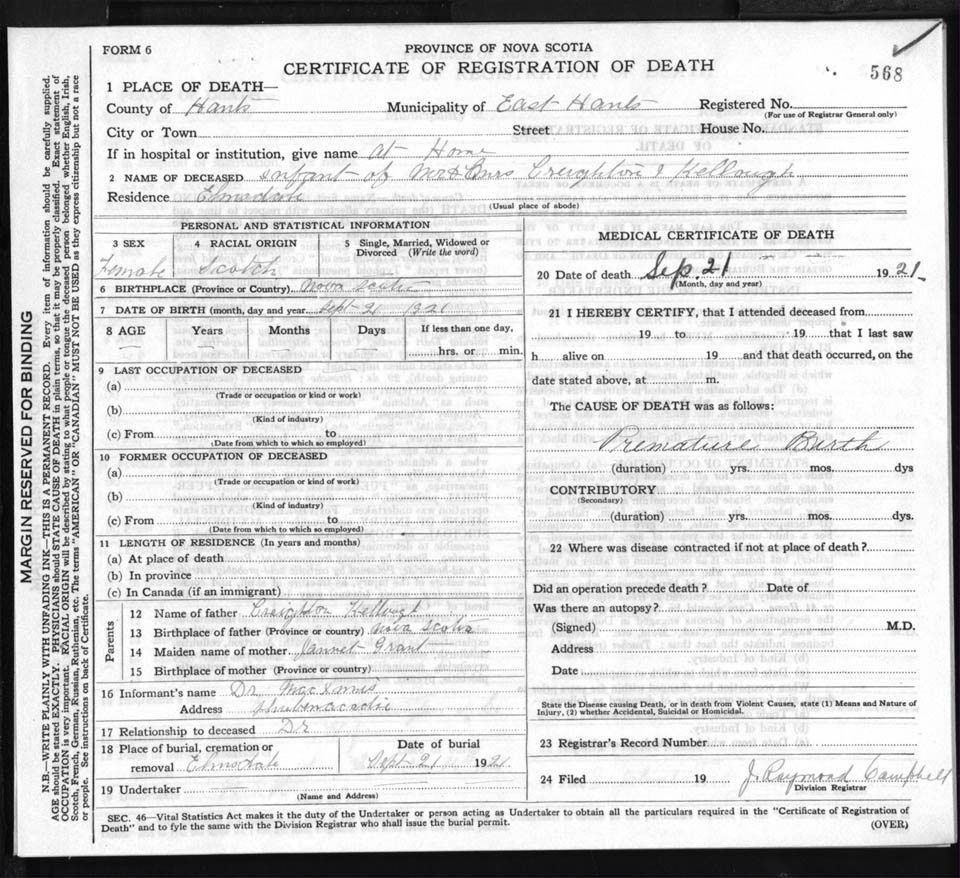 FORM 6
PROVINCE OF NOVA SCOTIA
CERTIFICATE OF REGISTRATION OF DEATH
568
1 PLACE OF DEATH—
County of Hants Municipality of East Hants Registered No.
(For use of Registrar General only)
City or Town Street House No.
If in hospital or institution, give name At Home
2 NAME OF DECEASED infant of Mr & Mrs Creighton Kellough
Residence Elmsdale
(Usual place of abode)
PERSONAL AND STATISTICAL INFORMATION
3 SEX 4 RACIAL ORIGIN 5 Single, Married, Widowed or Divorced (Write the word)
Female Scotch
6 BIRTHPLACE (Province or Country) Nova Scotia
7 DATE OF BIRTH (month, day and year) Sept 21 1921
8 AGE Years Months Days If less than one day,
hrs. or min.
9 LAST OCCUPATION OF DECEASED
(a)
(Trade or occupation or kind or work)
(b)
(Kind of industry)
(c) From to
(Date from which to which so employed)
10 FORMER OCCUPATION OF DECEASED
(a)
(Trade or occupation or kind of work)
(b)
(Kind of industry)
(c) From to
(Date from which to which so employed)
11 LENGTH OF RESIDENCE (In years and months)
(a) At place of death
(b) In province
(c) In Canada (if an immigrant)
Parents
12 Name of father Creighton Kellough
13 Birthplace of father (Province or country) Nova Scotia
14 Maiden name of mother Jannet Grant
15 Birthplace of mother (Province or country)
16 Informant's name Dr
Address Shubenacadie
17 Relationship to deceased Dr
18 Place of burial, cremation or Date of burial
removal Elmsdale Sept 21 1921
19 Undertaker
(Name and Address)
MEDICAL CERTIFICATE OF DEATH
20 Date of death Sep. 21 1921
(Month, day and year)
21 I HEREBY CERTIFY, that I attended deceased from
19 to 19 that I last saw
h alive on 19 and that death occurred, on the
date stated above, at m.
The CAUSE OF DEATH was as follows:
Premature Birth
(duration) yrs. mos. dys
CONTRIBUTORY
(Secondary)
(duration) yrs. mos. dys.
22 Where was disease contracted if not at place of death?
Did an operation precede death? Date of
Was there an autopsy?
(Signed) M.D.
Address
Date
State the Disease causing Death, or in death from Violent Causes, state (1) Means and Nature of
Injury, (2) whether Accidental, Suicidal or Homicidal.
23 Registrar's Record Number
24 Filed 19 J. Raymond Campbell
Division Registrar
SEC. 46—Vital Statistics Act makes it the duty of the Undertaker or person acting as Undertaker to obtain all the particulars required in the "Certificate of Registration of
Death" and to fyle the same with the Division Registrar who shall issue the burial permit.
(OVER)
MARGIN RESERVED FOR BINDING
N.B.—WRITE PLAINLY WITH UNFADING INK—THIS IS A PERMANENT RECORD. Every item of information should be carefully supplied.
AGE should be stated EXACTLY. PHYSICIANS should STATE CAUSE OF DEATH in plain terms, so that it may be properly classified. Exact statement of
OCCUPATION is very important. RACIAL ORIGIN will be described by stating to what people or tongue the deceased person belonged whether English, Irish,
Scotch, French, German, Russian, Ruthenian, etc. The terms "AMERICAN" OR "CANADIAN" MUST NOT BE USED as they express citizenship but not a race
or people. See instructions on back of Certificate.